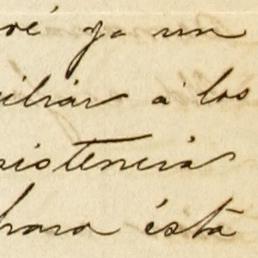 ré ya un
iliar á los
sistencia
para ésta